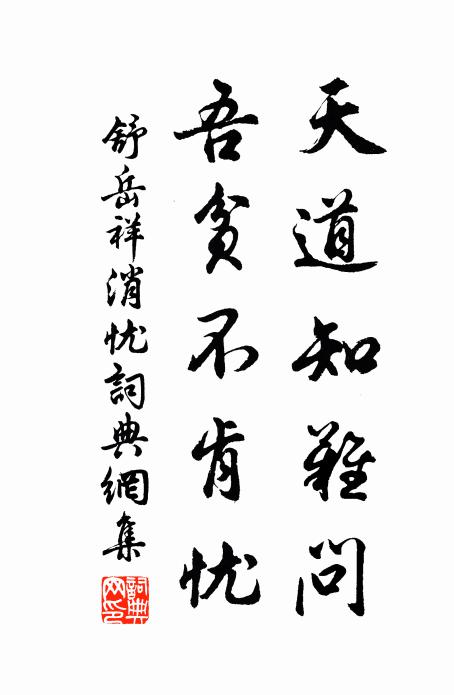 天道知難問
吾貧不肯忧
舒岳祥消忧詞典網集
詞典網印